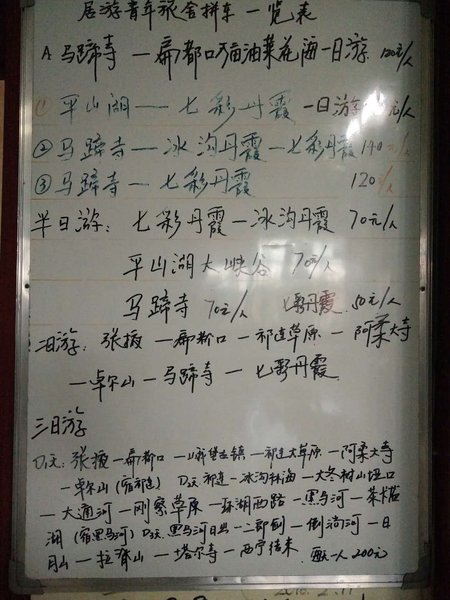 居游青年旅舍拼车一览表
A 马蹄寺—扁都口油菜花海一日游 120元/人
C 平山湖——七彩丹霞 一日游 元/人
② 马蹄寺—冰沟丹霞—七彩丹霞 140元/人
③ 马蹄寺—七彩丹霞 120元/人
半日游: 七彩丹霞—冰沟丹霞 70元/人
平山湖大峡谷 70元/人
马蹄寺 70元/人 七彩丹霞 50元/人
二日游: 张掖—扁都口—祁连草原—阿柔大寺
—卓尔山—马蹄寺—七彩丹霞
三日游
D1天: 张掖—扁都口—峨堡古镇—祁连大草原—阿柔大寺
—卓尔山 (宿祁连) D2天 祁连—冰沟林海—大冬树山垭口
—大通河—刚察草原—环湖西路—黑马河—茶卡盐
湖 (宿黑马河) D3天 黑马河日出—二郎剑—倒淌河—日
月山—拉脊山—塔尔寺—西宁结束 每天一人200元
2016.2.11